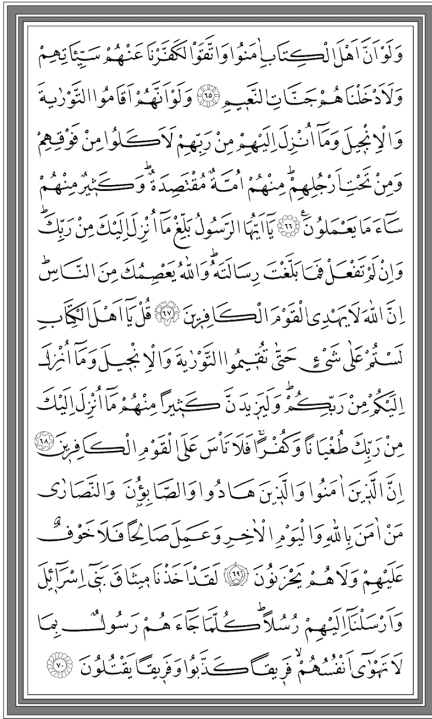 وَلَوْ اَنَّ اَهْلَ الْكِتَابِ اٰمَنُوا وَاتَّقَوْا لَكَفَّرْنَا عَنْهُمْ سَيِّـَٔاتِهِمْ
وَلَاَدْخَلْنَاهُمْ جَنَّاتِ النَّع۪يمِ ﴿٦٥﴾ وَلَوْ اَنَّهُمْ اَقَامُوا التَّوْرٰيةَ
وَالْاِنْج۪يلَ وَمَٓا اُنْزِلَ اِلَيْهِمْ مِنْ رَبِّهِمْ لَاَكَلُوا مِنْ فَوْقِهِمْ
وَمِنْ تَحْتِ اَرْجُلِهِمْۜ مِنْهُمْ اُمَّةٌ مُقْتَصِدَةٌۜ وَكَث۪يرٌ مِنْهُمْ
سَٓاءَ مَا يَعْمَلُونَ۟ ﴿٦٦﴾ يَٓا اَيُّهَا الرَّسُولُ بَلِّغْ مَٓا اُنْزِلَ اِلَيْكَ مِنْ رَبِّكَۜ
وَاِنْ لَمْ تَفْعَلْ فَمَا بَلَّغْتَ رِسَالَتَهُۜ وَاللّٰهُ يَعْصِمُكَ مِنَ النَّاسِۜ
اِنَّ اللّٰهَ لَا يَهْدِي الْقَوْمَ الْكَافِر۪ينَ ﴿٦٧﴾ قُلْ يَٓا اَهْلَ الْكِتَابِ
لَسْتُمْ عَلٰى شَيْءٍ حَتّٰى تُق۪يمُوا التَّوْرٰيةَ وَالْاِنْج۪يلَ وَمَٓا اُنْزِلَ
اِلَيْكُمْ مِنْ رَبِّكُمْۜ وَلَيَز۪يدَنَّ كَث۪يراً مِنْهُمْ مَٓا اُنْزِلَ اِلَيْكَ
مِنْ رَبِّكَ طُغْيَاناً وَكُفْراًۚ فَلَا تَأْسَ عَلَى الْقَوْمِ الْكَافِر۪ينَ ﴿٦٨﴾
اِنَّ الَّذ۪ينَ اٰمَنُوا وَالَّذ۪ينَ هَادُوا وَالصَّابِؤُ۫نَ وَالنَّصَارٰى
مَنْ اٰمَنَ بِاللّٰهِ وَالْيَوْمِ الْاٰخِرِ وَعَمِلَ صَالِحاً فَلَا خَوْفٌ
عَلَيْهِمْ وَلَا هُمْ يَحْزَنُونَ ﴿٦٩﴾ لَقَدْ اَخَذْنَا م۪يثَاقَ بَن۪ٓي اِسْرَٓائ۪لَ
وَاَرْسَلْنَٓا اِلَيْهِمْ رُسُلاًۜ كُلَّمَا جَٓاءَهُمْ رَسُولٌ بِمَا
لَا تَهْوٰٓى اَنْفُسُهُمْۙ فَر۪يقاً كَذَّبُوا وَفَر۪يقاً يَقْتُلُونَ ﴿٧٠﴾